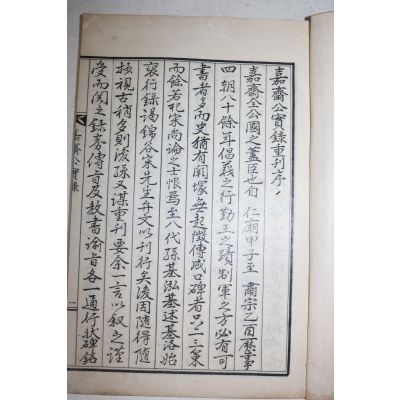 嘉齋公實錄重刊序
嘉齋全公國之藎臣世自 仁廟甲子至 肅宗乙酉歷事
四朝八十餘年倡義之行勤王之蹟制軍之方必有可
書者多而史猶有闕塚無起徵傳咸口碑者只二三策
而餘若杞宋尚論之士恨焉至八代孫基泓基述基洛始
裒行錄謁錦谷宋先生弁文以刊行矣後因隨得隨
拔視古稍多則後孫又謀重刊要余一言以敘之謹
受而閱之錄券傳旨及敎書諭旨各一通行狀碑銘
嘉齋公實錄
一